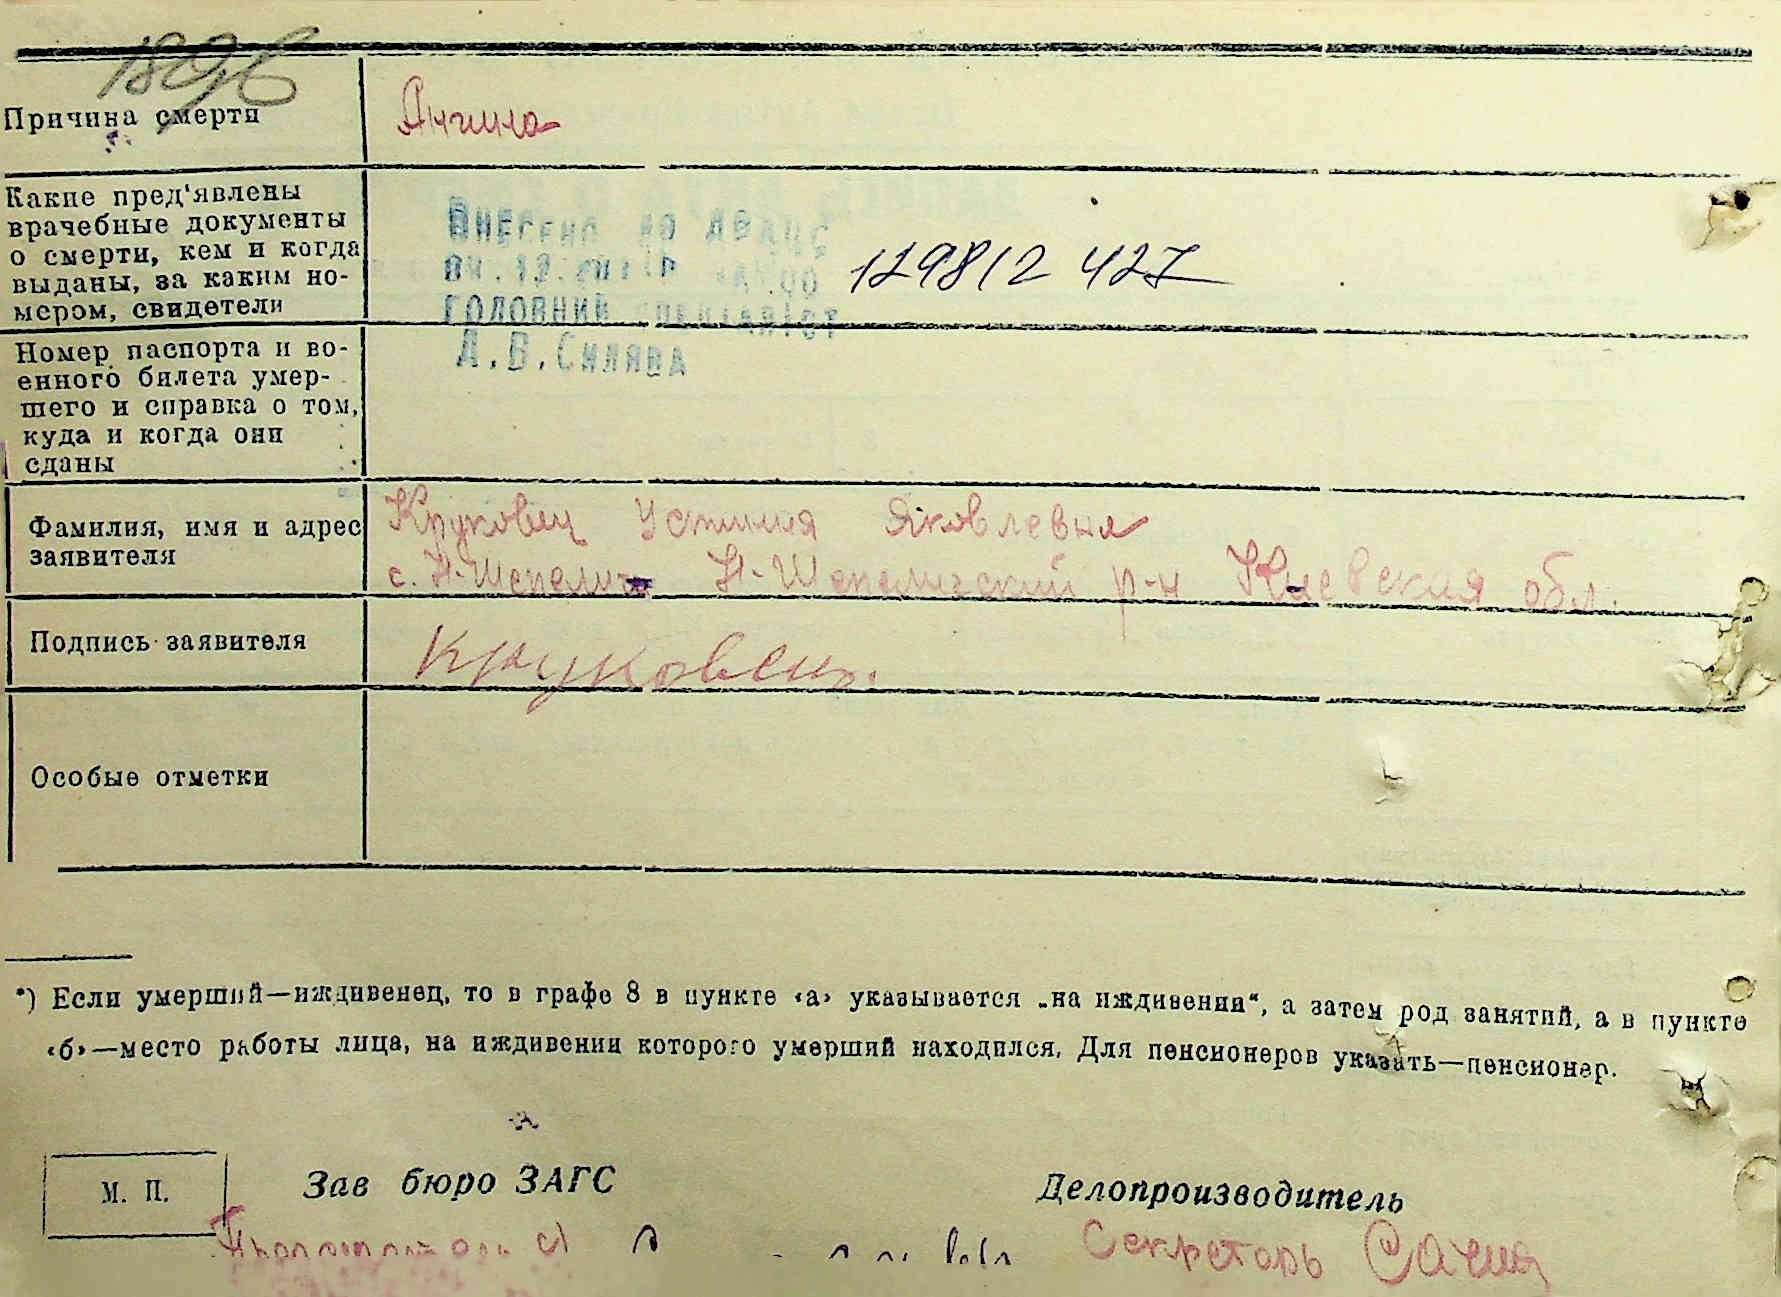 Причина смерти
Ангина
Какие пред'явлены
врачебные документы
о смерти, кем и когда
выданы, за каким но-
мером, свидетели
129812427
ГОЛОВНИЙ СПЕЦІАЛІСТ
Номер паспорта и во-
енного билета умер-
шего и справка о том,
куда и когда они
сданы
Фамилия, имя и адрес
заявителя
Круковец Устиния Яковлевна
с. Н-Шепеличи Н-Шепеличский р-н Киевская обл.
Подпись заявителя
Круковец.
Особые отметки
*) Если умерший—иждивенец, то в графе 8 в пункте «а» указывается „на иждивении“, а затем род занятий, а в пункте
«б»—место работы лица, на иждивении которого умерший находился. Для пенсионеров указать—пенсионер.
М. П.
Зав бюро ЗАГС
Делопроизводитель
Секретарь